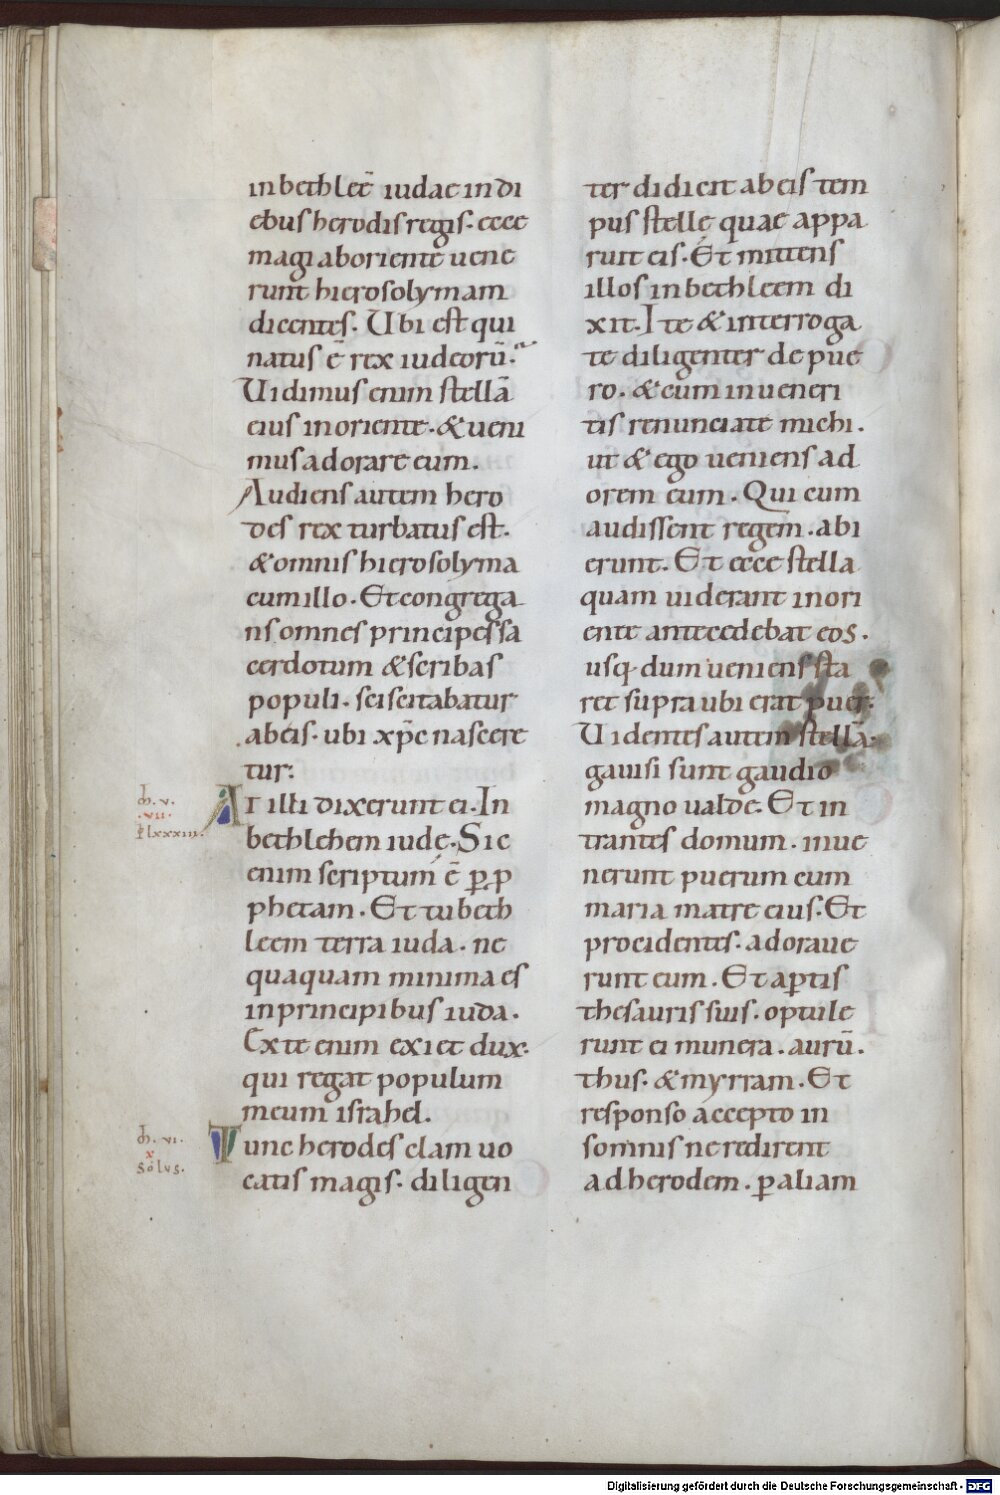 in bethleē iudae in di
ebus herodis regis. ecce
magi ab oriente uene
runt hierosolymam
dicentes. Ubi est qui
natus ē rex iudeorū.
Uidimus enim stellā
eius in oriente. & ueni
mus adorare eum.
Audiens autem hero
des rex turbatus est.
& omnis hierosolyma
cum illo. Et congrega
ns omnes principes sa
cerdotum & scribas
populi. sciscitabatur
ab eis. ubi xp̄c nascere
tur.
At illi dixerunt ei. In
bethlehem iudę. Sic
enim scriptum ē ꝑ ꝓ
phetam. Et tu beth
leem terra iuda. ne
quaquam minima es
in principibus iuda.
Ex te enim exiet dux.
qui regat populum
meum israhel.
Tunc herodes clam uo
catis magis. diligen
ter didicit ab eis tem
pus stellę quae appa
ruit eis. Et mittens
illos in bethleem di
xit. Ite & interroga
te diligenter de pue
ro. & cum inueneri
tis renunciate michi.
ut & ego ueniens ad
orem eum. Qui cum
audissent regem. abi
erunt. Et ecce stella
quam uiderant in ori
ente antecedebat eos.
usq; dum ueniens sta
ret supra ubi erat puer.
Uidentes autem stellā.
gauisi sunt gaudio
magno ualde. Et in
trantes domum. inue
nerunt puerum cum
maria matre eius. Et
procidentes. adoraue
runt eum. Et aꝑtis
thesauris suis. optule
runt ei munera. aurū.
thus. & myrram. Et
responso accepto in
somnis ne redirent
ad herodem. ꝑ aliam
.v.
.vii.
lxxxiii.
.vi.
x
solus.
Digitalisierung gefördert durch die Deutsche Forschungsgemeinschaft - DFG